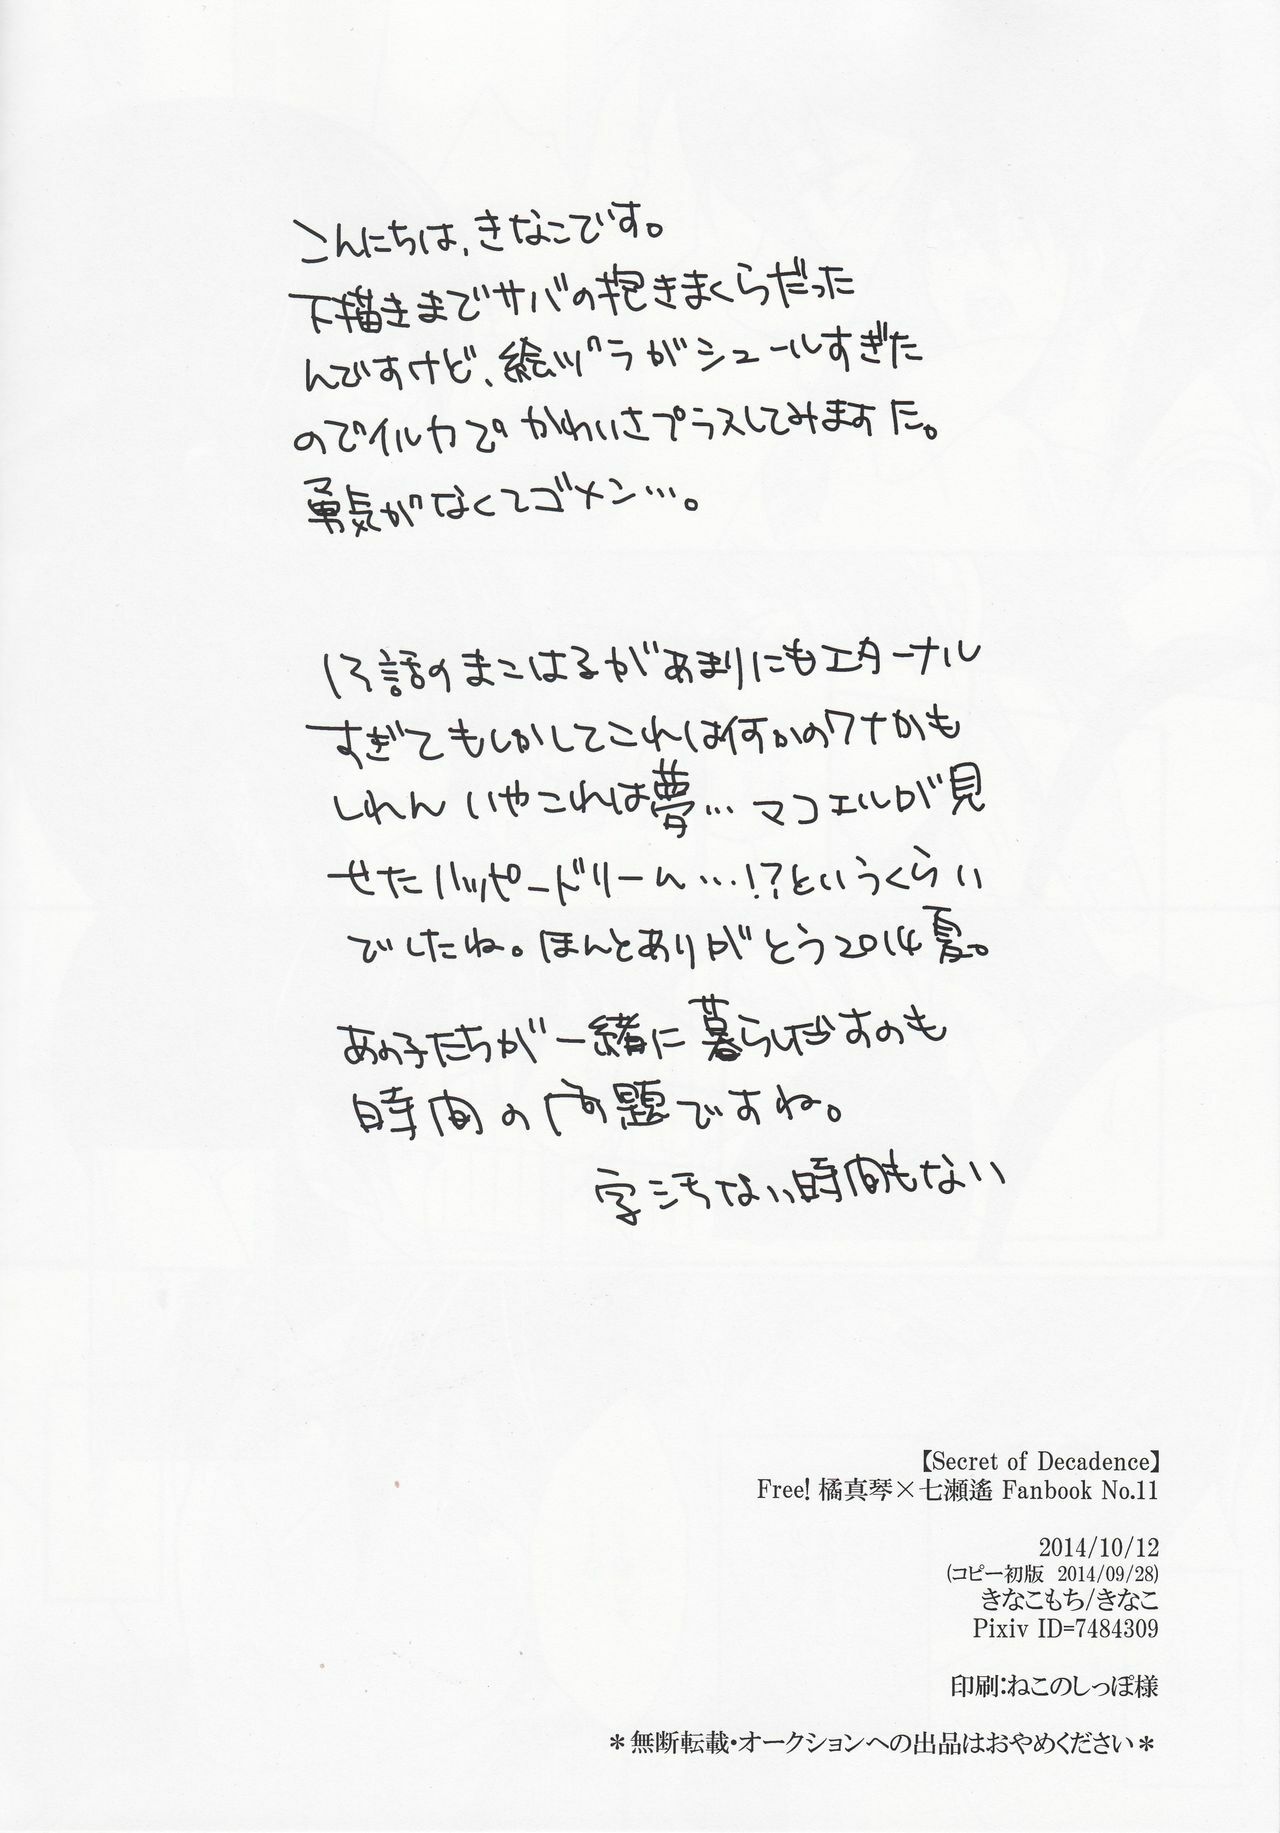 こんにちは、きなこです。
下描きまでサバの抱きまくらだった
んですけど、絵ヅラがシュールすぎた
のでイルカでかわいさプラスしてみました。
勇気がなくてゴメン…。
13話のまこはるがあまりにもエターナル
すぎてもしかしてこれは何かのワナかも
しれん いやこれは夢…マコエルが見
せたハッピードリーム…!?というくらい
でしたね。ほんとありがとう2014夏。
あの子たちが一緒に暮らしだすのも
時間の問題ですね。
字汚ない時間もない
【Secret of Decadence】
Free! 橘真琴×七瀬遙 Fanbook No.11
2014/10/12
(コピー初版 2014/09/28)
きなこもち/きなこ
Pixiv ID=7484309
印刷:ねこのしっぽ様
＊無断転載・オークションへの出品はおやめください＊